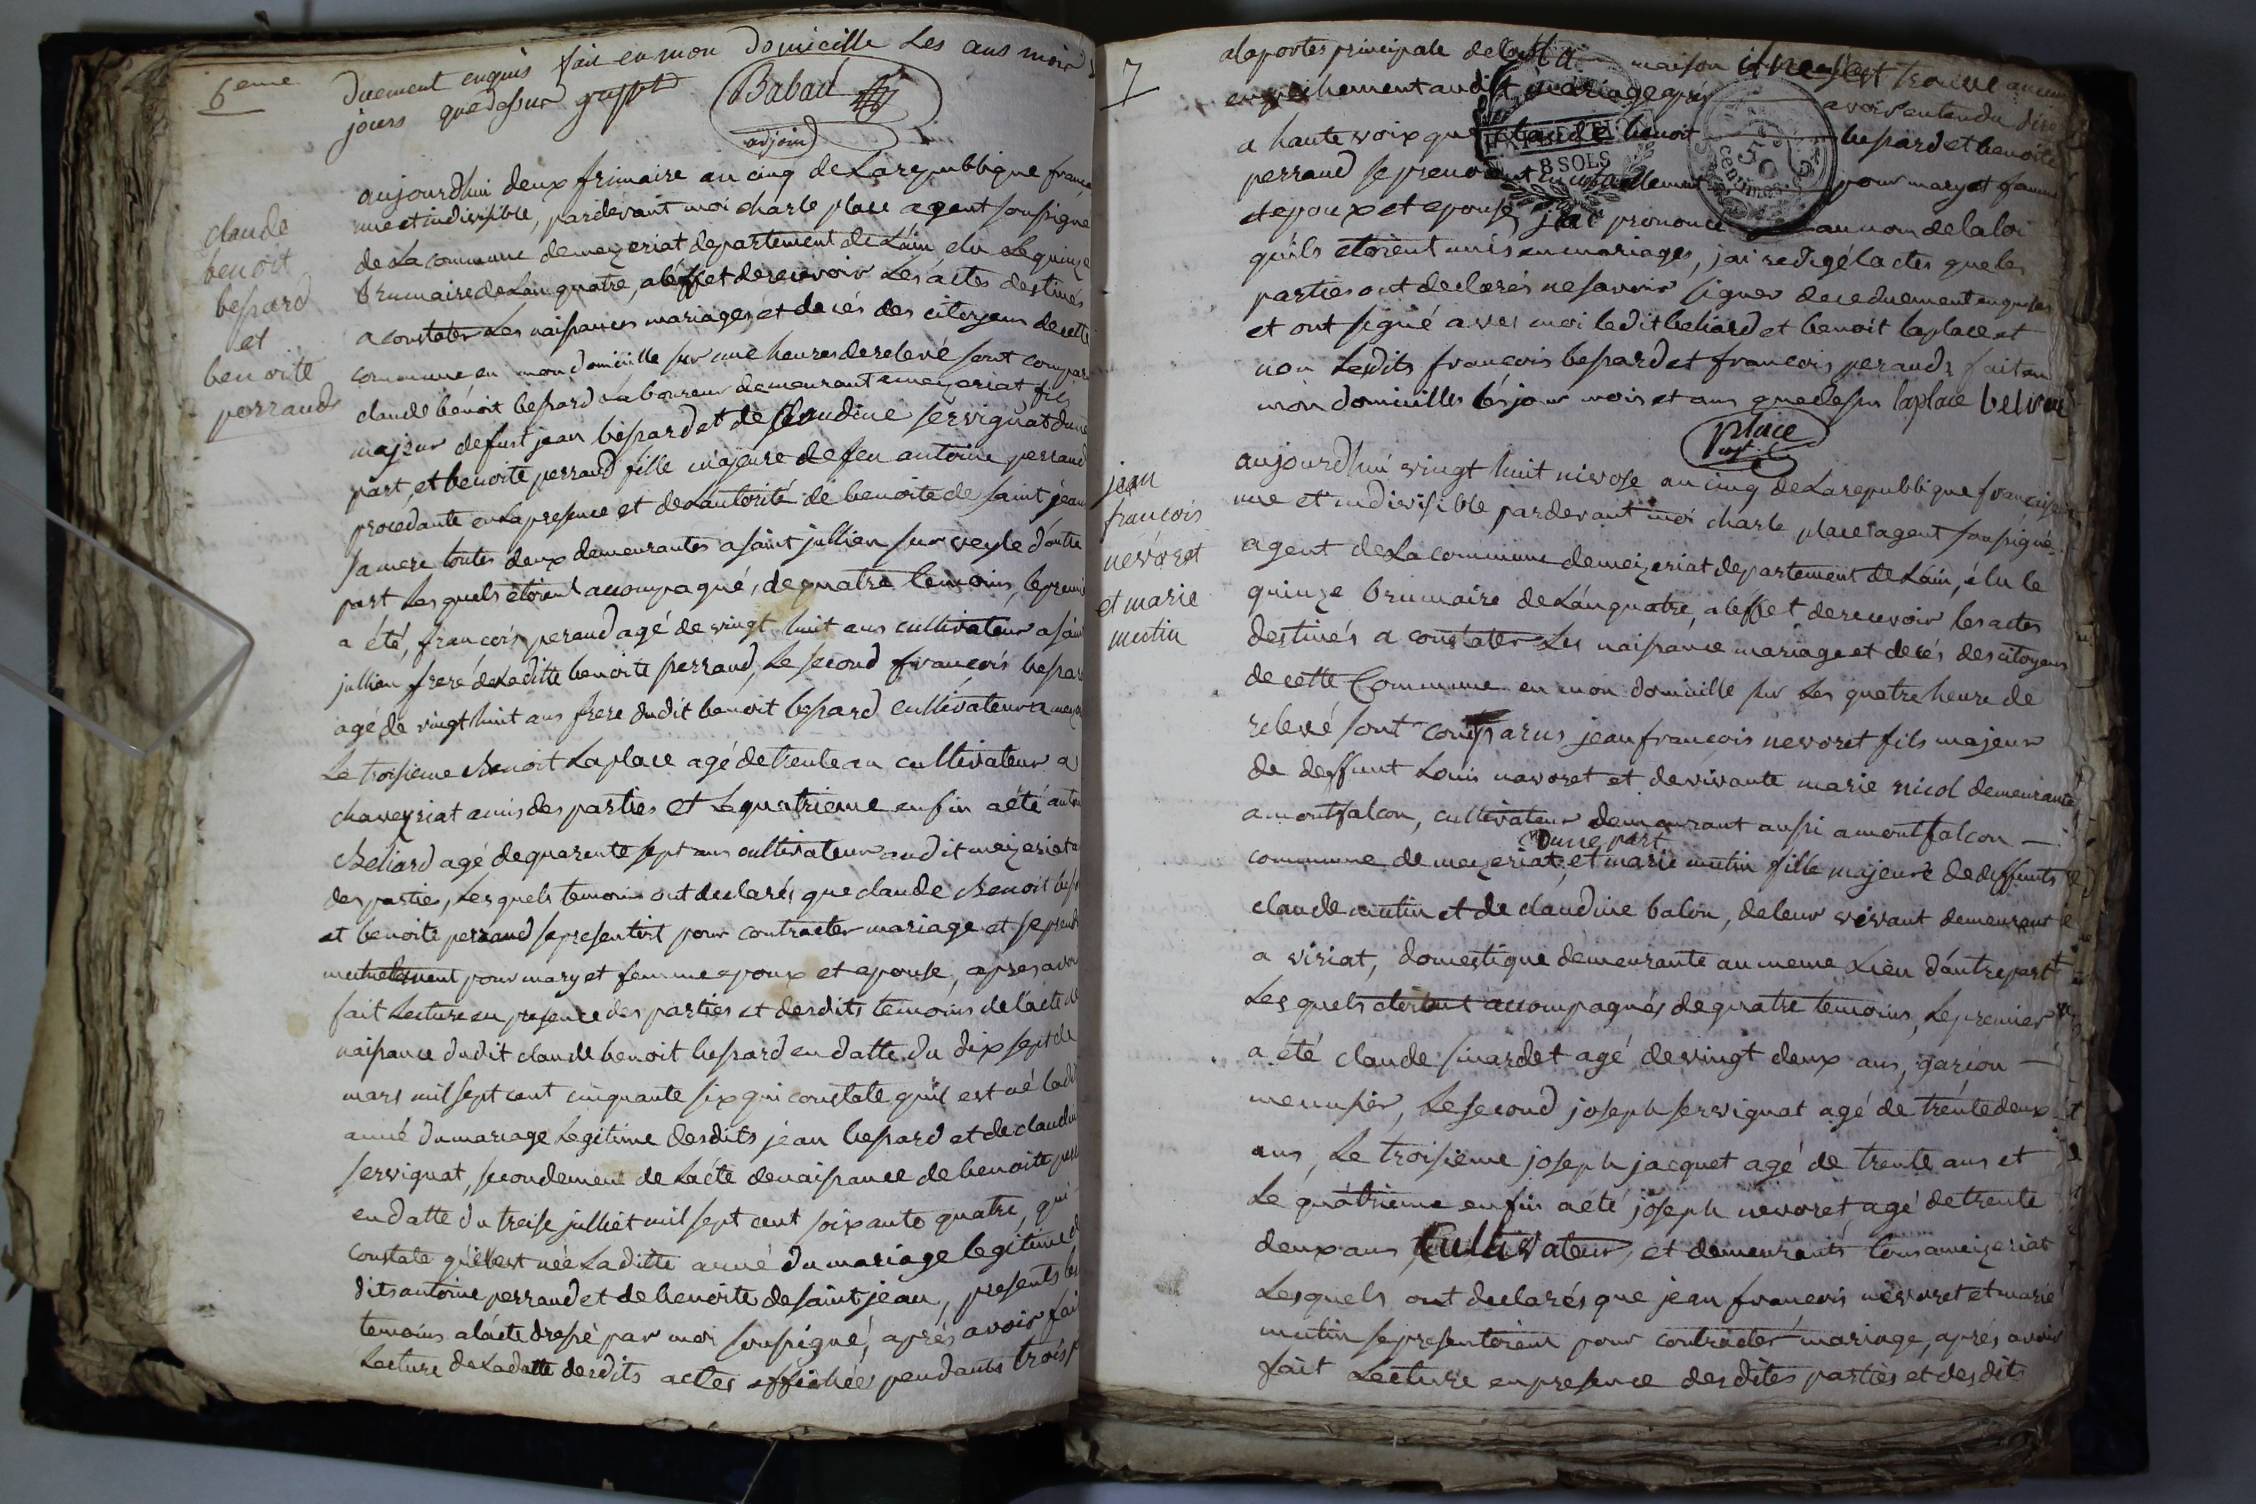 6eme
duement enquis fait en mon domicille Les ans mois
jours que dessur
Babad
adjoind
claude
benoit
bessard
et
benoite
perraud
aujourdhui deux frimaire an cinq de La republique franca
une et indivisible, pardevant moi charle place agent soussigne
de La commune de mezeriat departement de Lain, élu le quinze
brumaire de Lan quatre, a léffet de recevoir Les actes destinés
a constater Les naissances mariages et decés des citoyens de cette
commune en mon domicille sur une heures de relevé sont compar
claude bénoit bessard Laboureur demeurant a mezeriat fils
majeur de fust jean bessard et de Claudine servignat dune
part, et benoite perraud fille majeure de feu antoine perraud
procédante en La presence et de Lautorité de benoite de saint jean
sa mere toutes deux demeurantes a saint jullien sur veyle dautre
part Les quels étoient accompagné, de quatre temoins, le premie
a été, francois peraud agé de vingt huit ans cultivateur a sain
jullien frere de Laditte benoite perraud, Le second francois bessar
agé de vingt huit ans frere dudit benoit bessard cultivateur a mez
Le troisieme Benoit Laplace agé de trente an cultivateur a
chaveyriat amis des parties et Le quatrieme enfin a été anton
Beliard agé de quarente sept ans cultivateur audit mezeriat a
des parties, Les quels temoins ont declarés que claude Benoit bess
et benoite perraud se presentert pour contracter mariage et se prend
mutuelement pour mary et femme epoux et epouse, apres avoir
fait Lecture en presence des parties et desdits temoins de lacte de
naissance dudit claude benoit bessard en datte du dix sept de
mars mil sept cent cinquante six qui constate quil est né ladi
anné du mariage Legitime desdits jean bessard et de claudin
servignat, secondement de Lacte de naissance de benoite perr
en datte du treise julliet mil sept cent soixante quatre, qui
constate quélle est née Laditte anné du mariage legitime d
dits antoine perraud et de benoite de saint jean, presents les
temoins a lacte dressé par moi soussigné, aprés avoir fai
Lecture de La datte desdits actes affichée pendants trois
7
a la portes principale de maison il ne sest trouvé aucun
empeichement audit mariage apres avoir entendu dire
a haute voix que claude benoit bessard et benoite
perraud se prenoient mutuellement pour mary et femme
et epoux et epouse, jai prononcé au nom de la loi
EXPED. EN
8 SOLS
50
centimes
quils etoient unis en mariages, jai redigé lactes que les
parties ont declarés ne savoir signer de ce duement enquises
et ont signé aves moi ledit beliard et benoit laplace et
non Lesdits francois bessard et francois peraud, fait en
mon domicilles les jour mois et ans que dessus laplace beliard
place
agt
jean
francois
nevoret
et marie
mutin
aujourdhui vingt huit nivose an cinq de La republique francaise
une et indivisible par devant moi charle place agent soussigné
agent de La commune de mezeriat departement de Lain, élu le
quinze brumaire de Lan quatre, a leffet de recevoir les actes
destinés a constater Les naissance mariage et decés des citoyens
de cette Commune en mon domicille sur Les quatre heure de
relevé sont comparus jean francois nevoret fils majeur
de deffunt Louis navoret et de vivante marie nicol demeurante
a montfalcon, cultivateur demeurant aussi a montfalcon —
Dune part
commune de mezeriat, et marie mutin fille majeure de deffunts
claude mutin et de claudine balon, de leur vivant demeurant
a viriat, domestique demeurante au meme Lieu dautre part
Les quels etoient accompagnés de quatre temoins, Le premier
a été claude suardet agé de vingt deux ans, garcon —
menusier, Le second joseph servignat agé de trente deux
ans, Le troisiéme joseph jacquet agé de trente ans et
Le quatrieme enfin a été joseph nevoret, agé de trente
deux ans Cultivateur, et demeurants tous a meizeriat
Lesquels ont declarés que jean francois nevoret et marie
mutin se presentoient pour contracter mariage, aprés avoir
fait Lecture en presence desdites parties et desdits